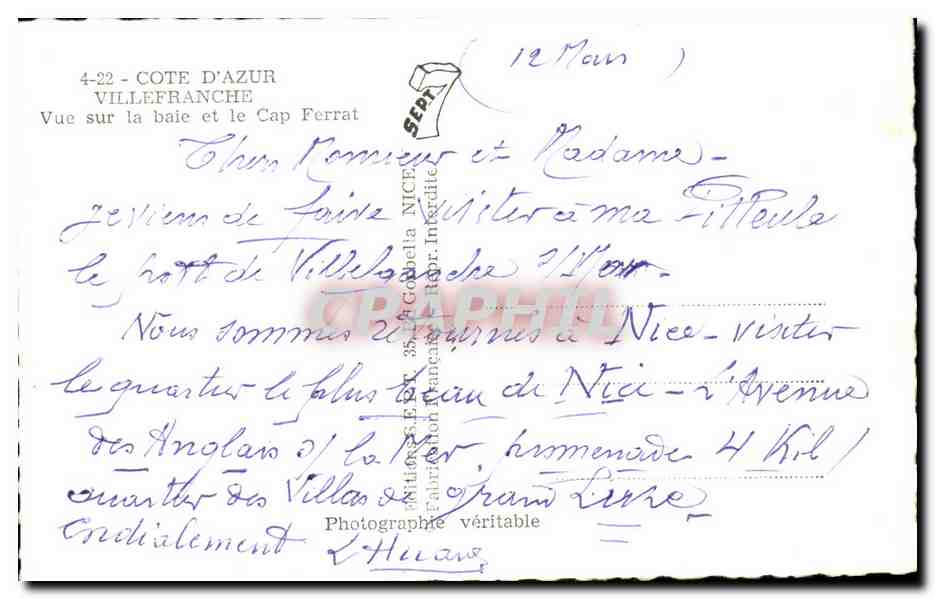 (12 Mars)
4-22 - COTE D'AZUR
VILLEFRANCHE
Vue sur la baie et le Cap Ferrat
SEPT 7
Chers Monsieur et Madame -
je viens de faire visiter à ma
le port de Villefranche s/Mer -
Nous sommes retournés à Nice - visiter
le quartier le plus beau de Nice - L'Avenue
des Anglais s/ la Mer. promenade 4 Kil/
quartier des Villas de grand Luxe -
Cordialement
Editions S.E.P.T. 35, Gobella NICE
Fabrication Française - Repr. Interdite
Photographie véritable
CPAPHIL